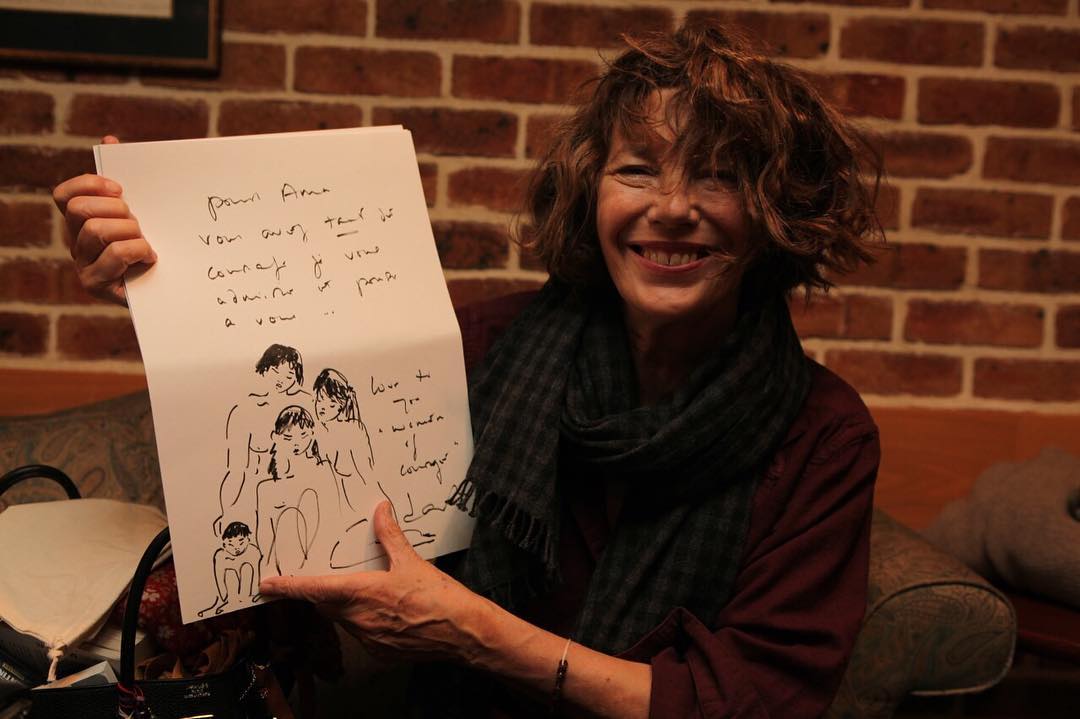 pour Anna
vous avez tant de
courage je vous
admire et pense
a vous ...
love to
you
"women
of
courage"